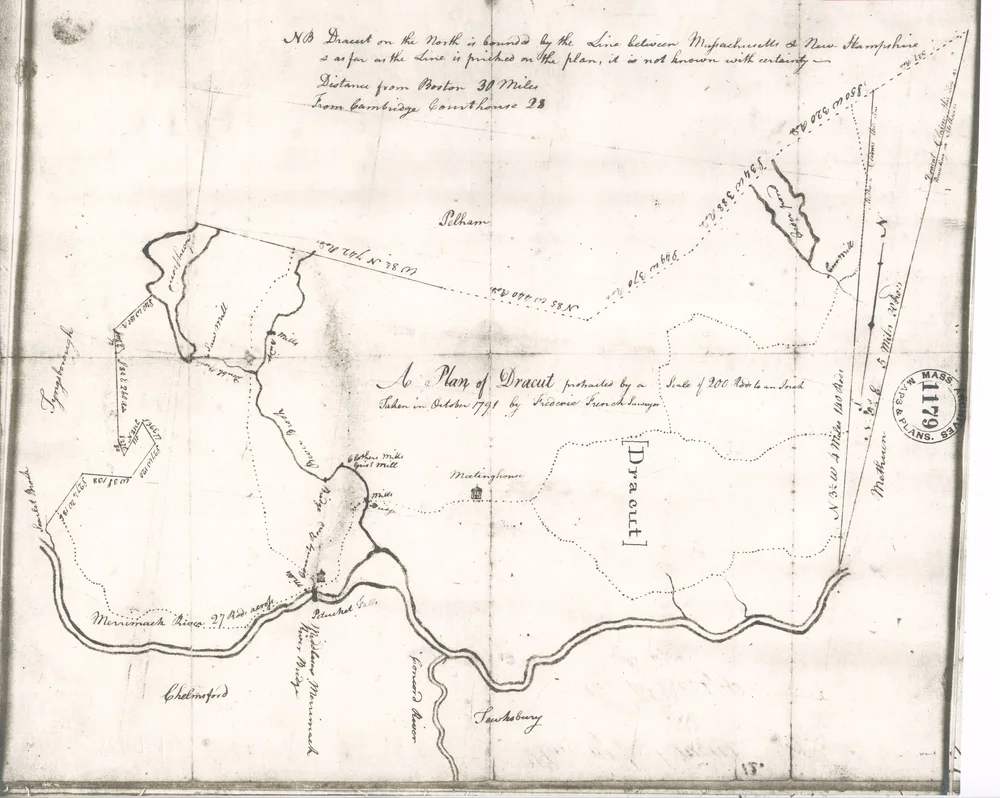 NB Dracut on the North is bounded by the Line between Massachusetts & New Hampshire
& as far as the Line is pricked on the plan, it is not known with certainty
Distance from Boston 30 Miles
From Cambridge Courthouse 28
S50 W 320 Rds
S34 W 388 Rds
Pelham
W 8½ N 742 Rds
S44 W 370 Rds
N 85 W 440 Rds
N
Sawmill
Saw Mill
Mills
Tyngsborough
A Plan of Dracut protracted by a Scale of 200 Rods to an Inch
Taken in October 1791 by Frederic French Surveyor
MASS. ARCHIVES
1179
MAPS & PLANS.
5 Miles
N 3½ W 4 Miles 140 Rods
Methuen
Beaver Brook
Clothers Mills
Grist Mill
Meetinghouse
Mills
[Dracut]
Scarlet Brook
Bridge
Merrimack River 27 Rods across
Pitucket Falls
Middlesex Merrimack
River Bridge
Chelmsford
Concord River
Tewksbury